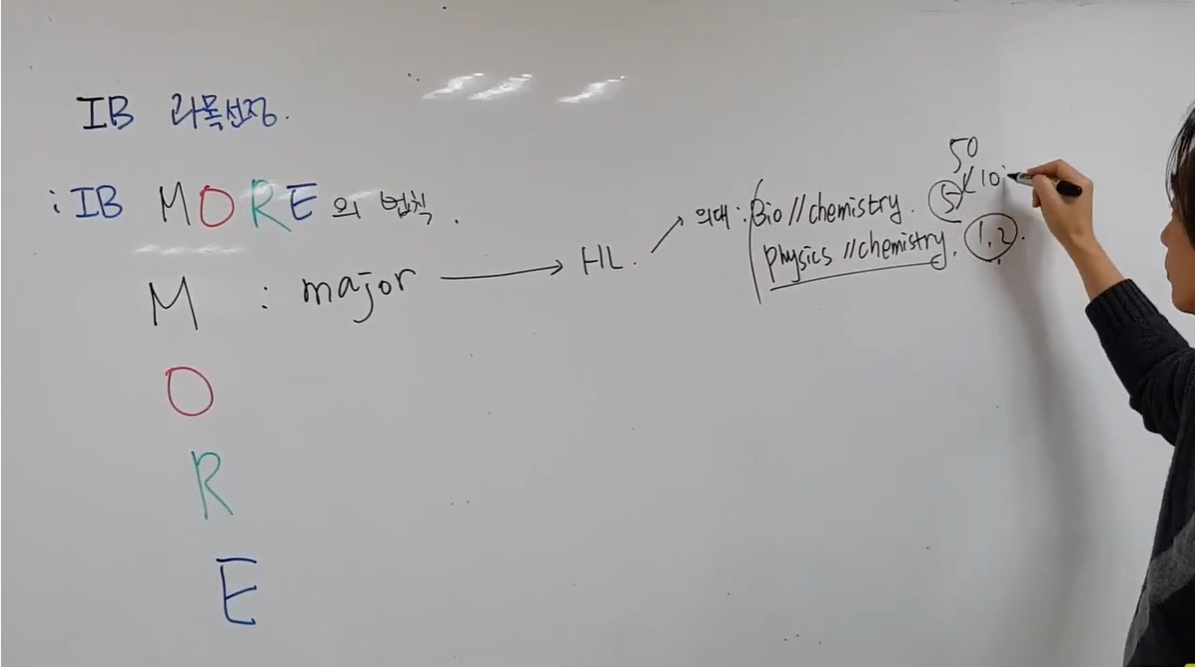 IB 과목선정.
: IB MORE의 법칙.
M : major → HL. ↗ 의대 : Bio // chemistry. 5 < 10
50
physics // chemistry. 1, 2.
O
R
E